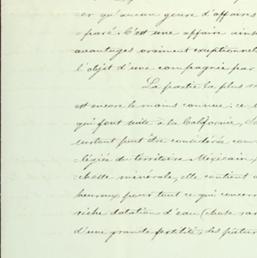 er qu'aucun genre d'affaires
paré. C'est une affaire ains
avantages vraiment exceptionnels
l'objet d'une compagnie par
La partie la plus
est encore le moins connue: ce
qui font suite à la Californie,
peut être considérée com
du territoire Mexicain,
minérale, elle contient
heureux pour tout ce qui concern
riche dotation d'eau (chose rar
d'une grande fertilité, des pâtur